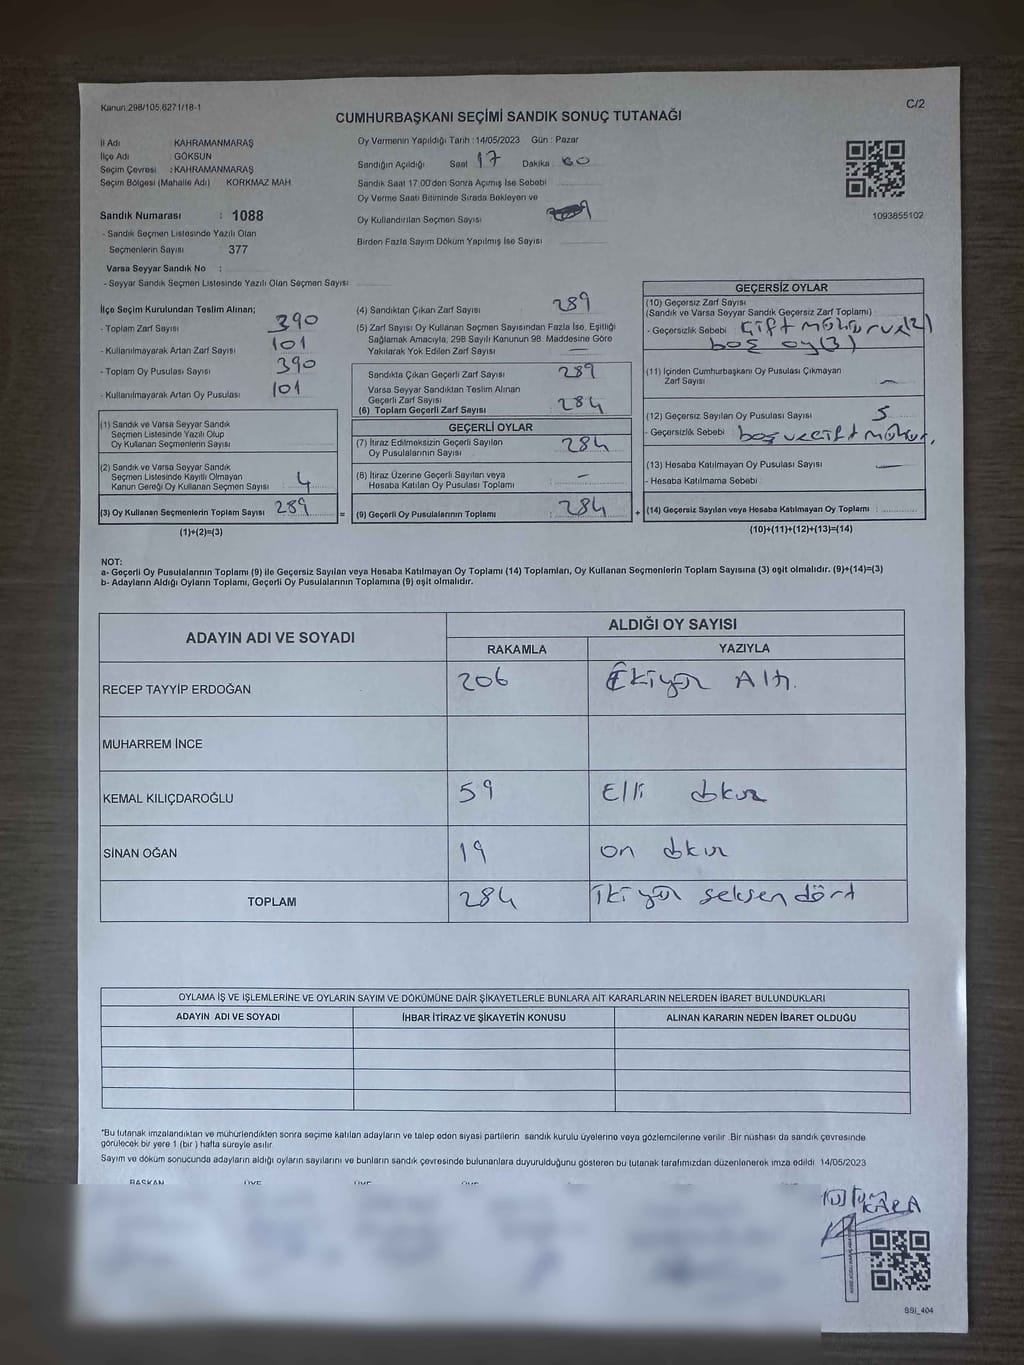 Kanun.298/105,6271/18-1
C/2
CUMHURBAŞKANI SEÇİMİ SANDIK SONUÇ TUTANAĞI
İl Adı KAHRAMANMARAŞ
İlçe Adı : GÖKSUN
Seçim Çevresi : KAHRAMANMARAŞ
Seçim Bölgesi (Mahalle Adı) KORKMAZ MAH
Sandık Numarası : 1088
- Sandık Seçmen Listesinde Yazılı Olan
Seçmenlerin Sayısı 377
Varsa Seyyar Sandık No :
- Seyyar Sandık Seçmen Listesinde Yazılı Olan Seçmen Sayısı
Oy Vermenin Yapıldığı Tarih : 14/05/2023 Gün : Pazar
Sandığın Açıldığı Saat 17 Dakika 00
Sandık Saat 17.00'den Sonra Açımış İse Sebebi
Oy Verme Saati Bitiminde Sırada Bekleyen ve
Oy Kullandırılan Seçmen Sayısı
Birden Fazla Sayım Döküm Yapılmış İse Sayısı
1093855102
İlçe Seçim Kurulundan Teslim Alınan;
- Toplam Zarf Sayısı 390
- Kullanılmayarak Artan Zarf Sayısı 101
- Toplam Oy Pusulası Sayısı 390
- Kullanılmayarak Artan Oy Pusulası 101
(1) Sandık ve Varsa Seyyar Sandık
Seçmen Listesinde Yazılı Olup
Oy Kullanan Seçmenlerin Sayısı
(2) Sandık ve Varsa Seyyar Sandık
Seçmen Listesinde Kayıtlı Olmayan
Kanun Gereği Oy Kullanan Seçmen Sayısı : 4
(3) Oy Kullanan Seçmenlerin Toplam Sayısı 289 =
(1)+(2)=(3)
(4) Sandıktan Çıkan Zarf Sayısı : 289
(5) Zarf Sayısı Oy Kullanan Seçmen Sayısından Fazla İse, Eşitliği
Sağlamak Amacıyla, 298 Sayılı Kanunun 98. Maddesine Göre
Yakılarak Yok Edilen Zarf Sayısı : —
Sandıkta Çıkan Geçerli Zarf Sayısı : 289
Varsa Seyyar Sandıktan Teslim Alınan
(6) Toplam Geçerli Zarf Sayısı : 284
GEÇERLİ OYLAR
(7) İtiraz Edilmeksizin Geçerli Sayılan
Oy Pusulalarının Sayısı : 284
(8) İtiraz Üzerine Geçerli Sayılan veya
Hesaba Katılan Oy Pusulası Toplamı : —
(9) Geçerli Oy Pusulalarının Toplamı : 284 +
GEÇERSİZ OYLAR
(10) Geçersiz Zarf Sayısı
(Sandık ve Varsa Seyyar Sandık Geçersiz Zarf Toplamı) :
- Geçersizlik Sebebi : Çift (2)
boş oy (3)
(11) İçinden Cumhurbaşkanı Oy Pusulası Çıkmayan
Zarf Sayısı : —
(12) Geçersiz Sayılan Oy Pusulası Sayısı : 5
- Geçersizlik Sebebi : boş ve çift mühür.
(13) Hesaba Katılmayan Oy Pusulası Sayısı : —
- Hesaba Katılmama Sebebi :
(14) Geçersiz Sayılan veya Hesaba Katılmayan Oy Toplamı :
(10)+(11)+(12)+(13)=(14)
NOT:
a- Geçerli Oy Pusulalarının Toplamı (9) ile Geçersiz Sayılan veya Hesaba Katılmayan Oy Toplamı (14) Toplamları, Oy Kullanan Seçmenlerin Toplam Sayısına (3) eşit olmalıdır. (9)+(14)=(3)
b- Adayların Aldığı Oyların Toplamı, Geçerli Oy Pusulalarının Toplamına (9) eşit olmalıdır.
ADAYIN ADI VE SOYADI ALDIĞI OY SAYISI
RAKAMLA YAZIYLA
RECEP TAYYİP ERDOĞAN 206 İkiyüz Altı.
MUHARREM İNCE
KEMAL KILIÇDAROĞLU 59 Elli dokuz
SİNAN OĞAN 19 on dokuz
TOPLAM 284 ikiyüz seksen dört
OYLAMA İŞ VE İŞLEMLERİNE VE OYLARIN SAYIM VE DÖKÜMÜNE DAİR ŞİKAYETLERLE BUNLARA AİT KARARLARIN NELERDEN İBARET BULUNDUKLARI
ADAYIN ADI VE SOYADI İHBAR İTİRAZ VE ŞİKAYETİN KONUSU ALINAN KARARIN NEDEN İBARET OLDUĞU
*Bu tutanak imzalandıktan ve mühürlendikten sonra seçime katılan adayların ve talep eden siyasi partilerin sandık kurulu üyelerine veya gözlemcilerine verilir .Bir nüshası da sandık çevresinde
görülecek bir yere 1 (bir ) hafta süreyle asılır.
Sayım ve döküm sonucunda adayların aldığı oyların sayılarını ve bunların sandık çevresinde bulunanlara duyurulduğunu gösteren bu tutanak tarafımızdan düzenlenerek imza edildi 14/05/2023
BAŞKAN ÜYE ÜYE ÜYE
KARA
SSI_404